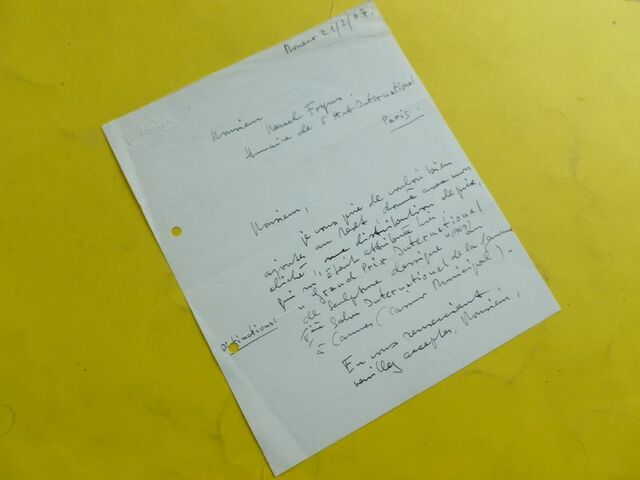 21/2/67.
Monsieur
Marcel
Annuaire de l'Art International
Paris.
Monsieur,
je vous prie de vouloir bien
ajouter au texte, donné avec mon
cliché, une distribution de prix,
qui m'était attribuée
"Grand Prix International
de Sculpture classique"
Salon International de la
à Cannes (Casino Municipal) -
Distinctions:
En vous remerciant
veuillez accepter, Monsieur,